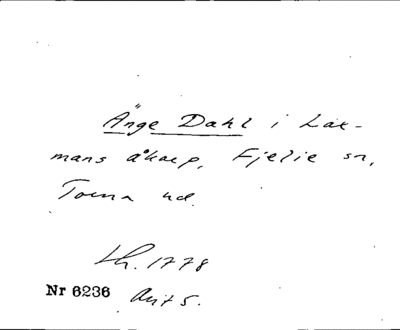 Änge Dahl i Lax-
mans åkarp, Fjelie sn,
Torna hd.
Lh. 1778
Nr 6236 Avit 5.